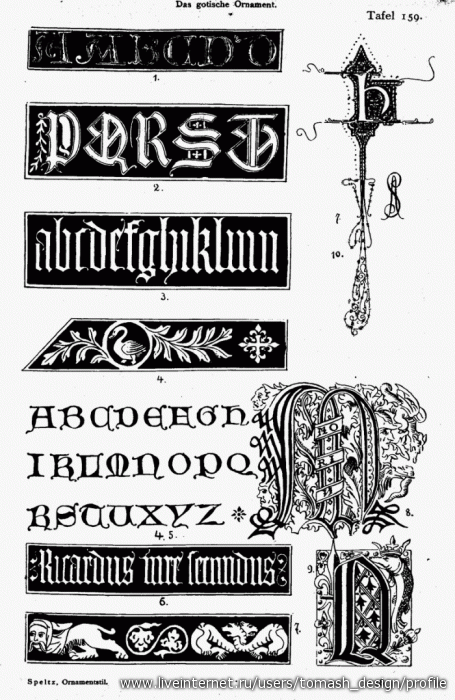 Das gotische Ornament.
Tafel 159.
1.
PQRST
2.
abcdefghiklmn
3.
4.
ABCDEFGH
IKLMNOPQ
RSTUVXYZ
4. 5.
h
7
10.
8.
Ricardus iure secundus
6.
9.
7.
Speltz, Ornamentstil.
www.liveinternet.ru/users/tomash_design/profile